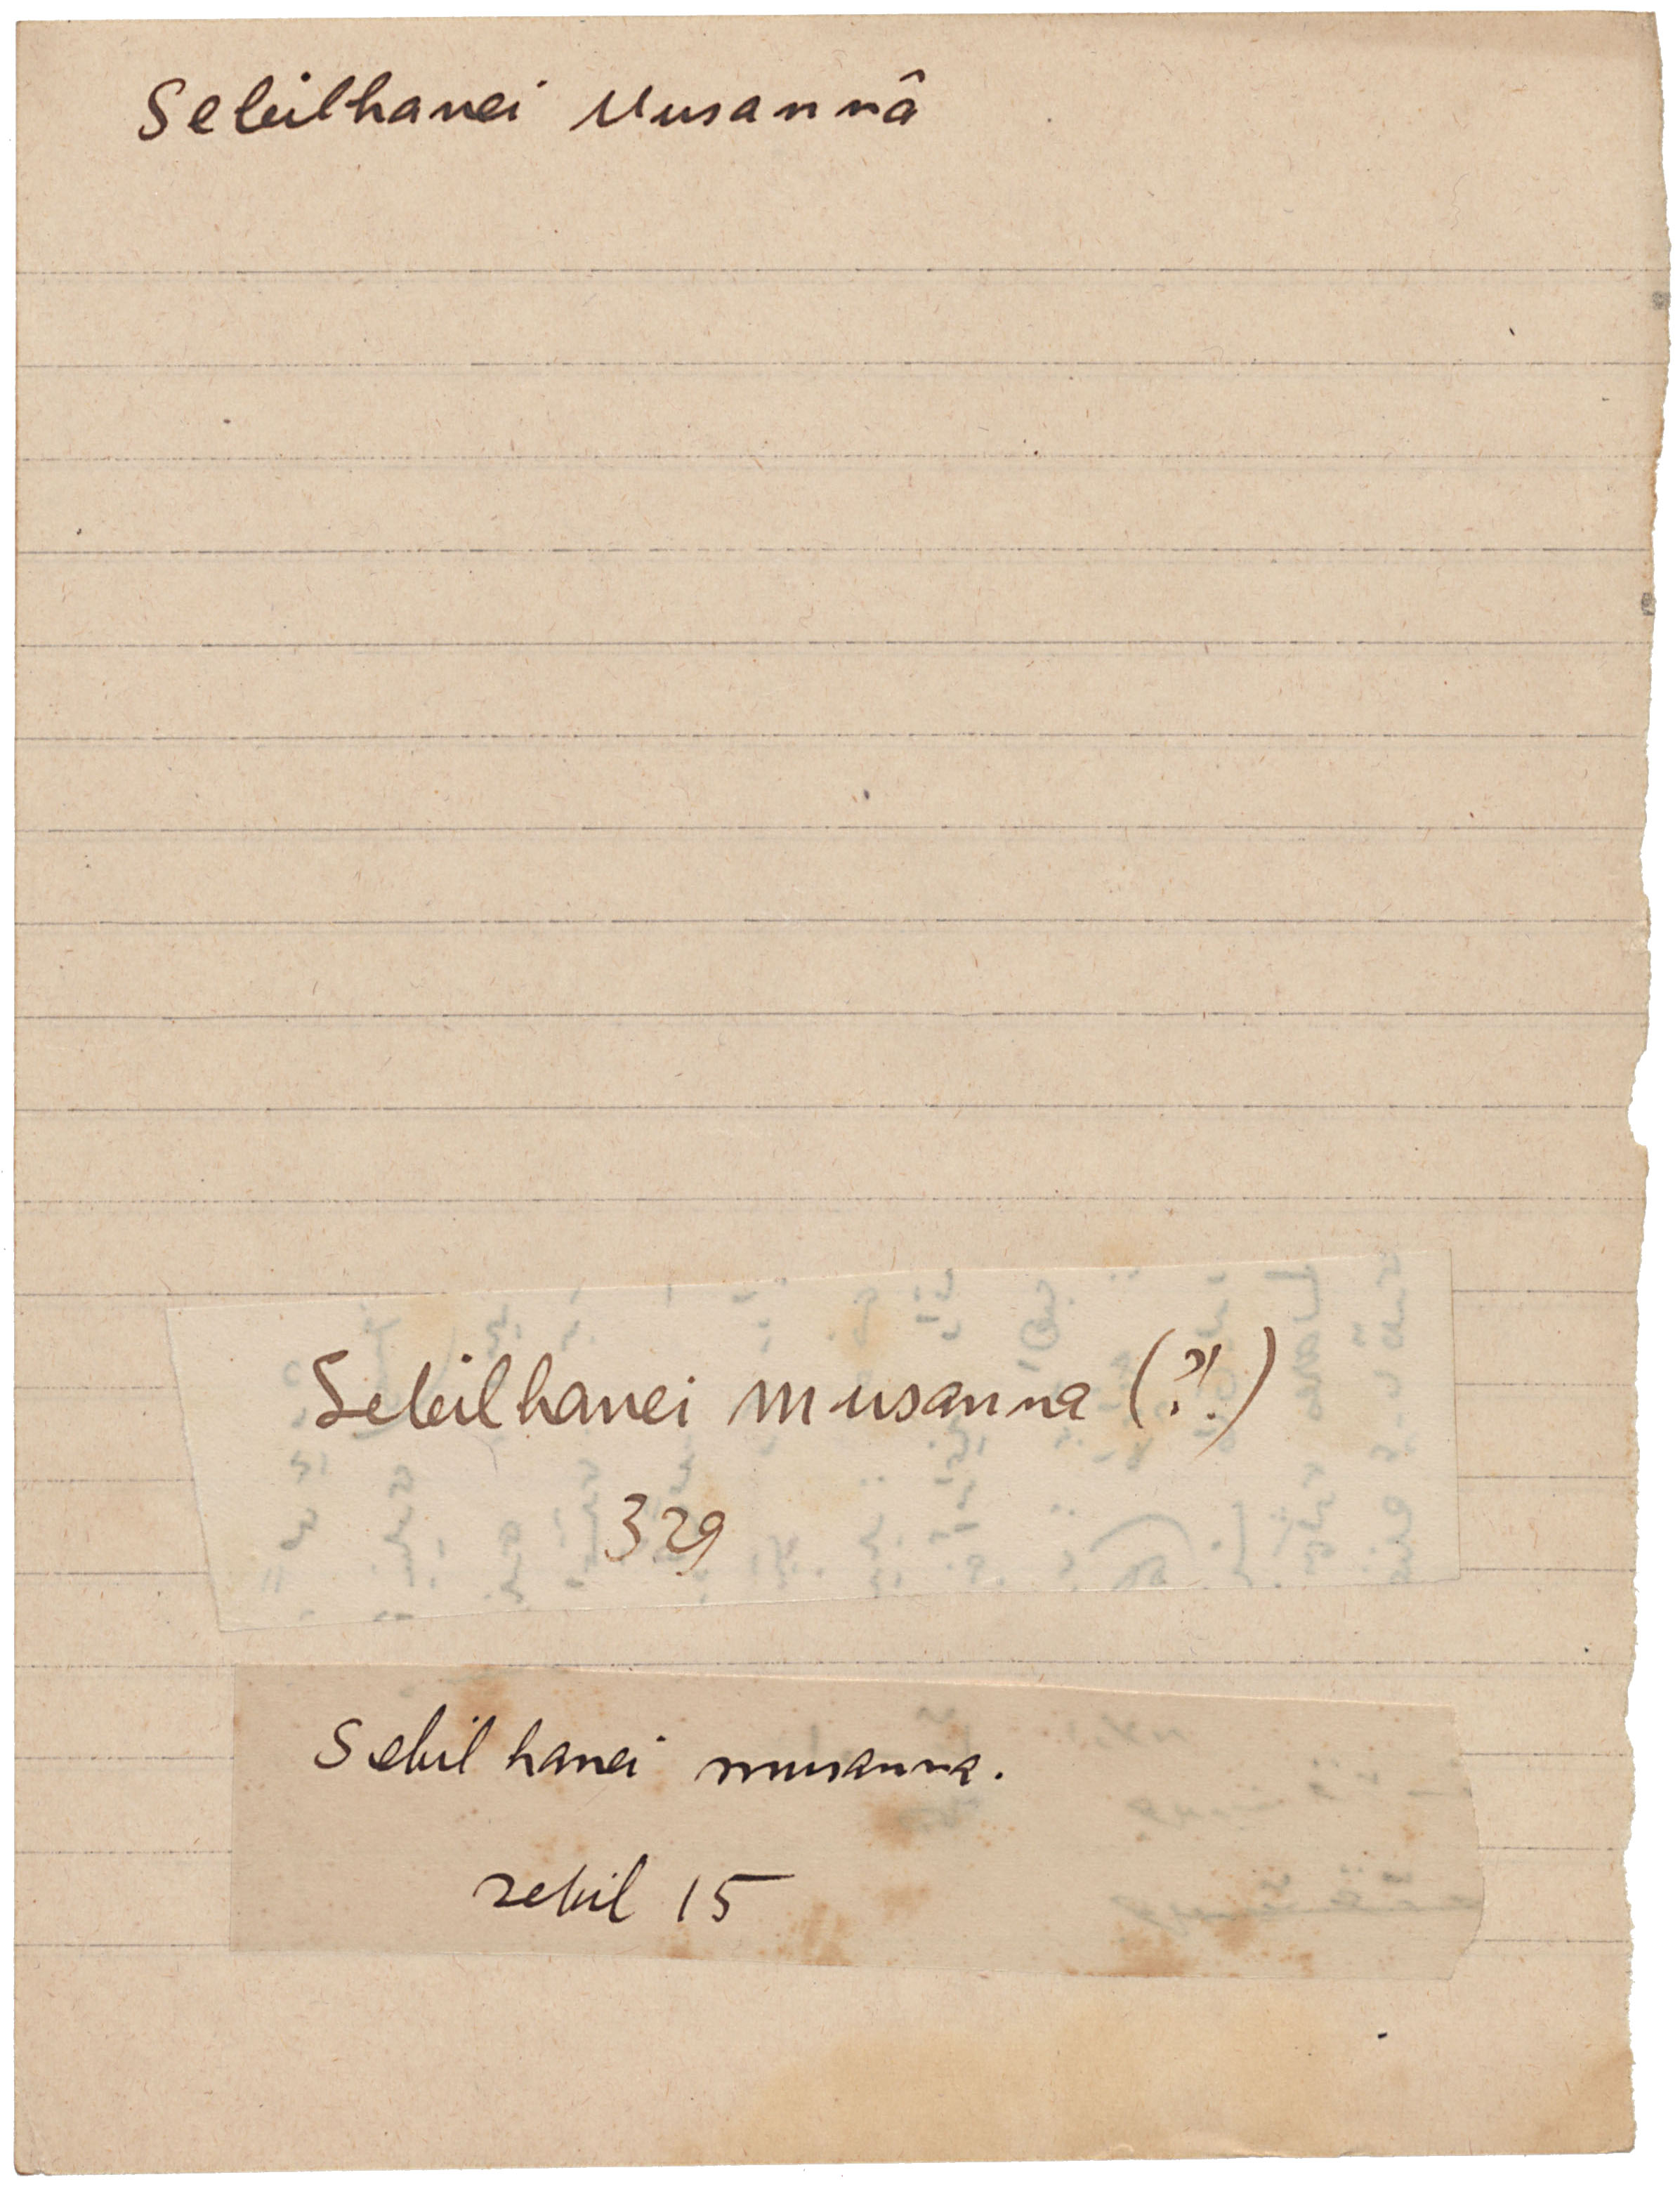 Sebilhanei Musannâ
Sebilhanei Musanna (?!)
329
Sebil hanei musanna.
sebil 15